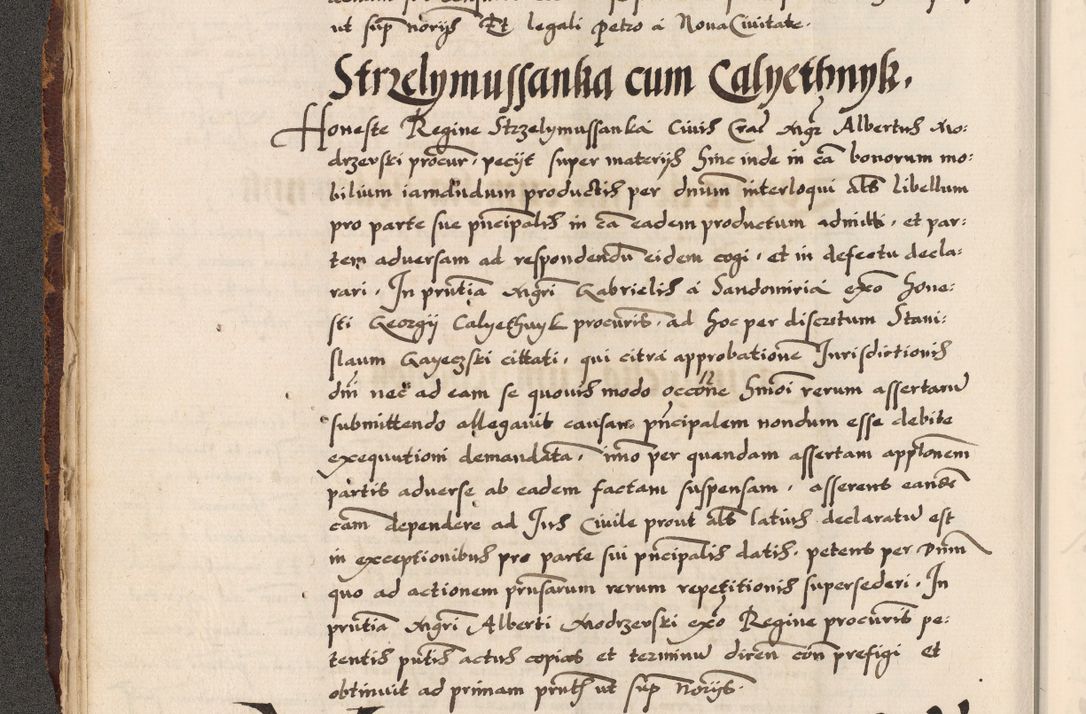 ut sup̄ norijs Et legali petro a Noua Ciuitate.
Strzelymussanka cum Calyethnyk.
Honeste Regine Strzelymussanka Ciuis Crac̄ Mgr̄ Albertus Mo:
drzevski procur. pecijt super materijs hinc inde in cā bonorum mo:
bilium iamdudum productis per dnūm interloqui als̄ libellum
pro parte sue pn̄cipalis in cā eadem productum admitti, et par:
tem adversam ad respondendū eidem cogi, et in defectu decla:
rari. In pn̄tia Mgr̄i Gabrielis a Sandomiria ex̄o hone:
sti Georgij Calyethnyk procuris̄, ad hoc per discretum Stani:
slaum Gayeczski cittati, qui citra approbationē Jurisdictionis
dn̄i nec ad eam se quouis modo occōne hmōi rerum assertarū
submittendo allegauit causam pn̄cipalem nondum esse debite
exequutioni demandata, imo per quandam assertam applonem̄
partis aduerse ab eadem factam suspensam, asserens eandē
cām dependere ad Jus Ciuile prout als̄ latius declaratū est
in exceptionibus pro parte sui pn̄cipalis datis. petens per Dnm̄
quo ad actionem prn̄sarum rerum repetitionis supersederi. In
pn̄tia Mgr̄i Alberti Modrzevski ex̄o Regine procuris̄ pe:
tentis pn̄tis actus copias et terminū dicen̄ con̄ prefigi et
obtinuit ad primam prn̄th ut sup̄ Norijs.